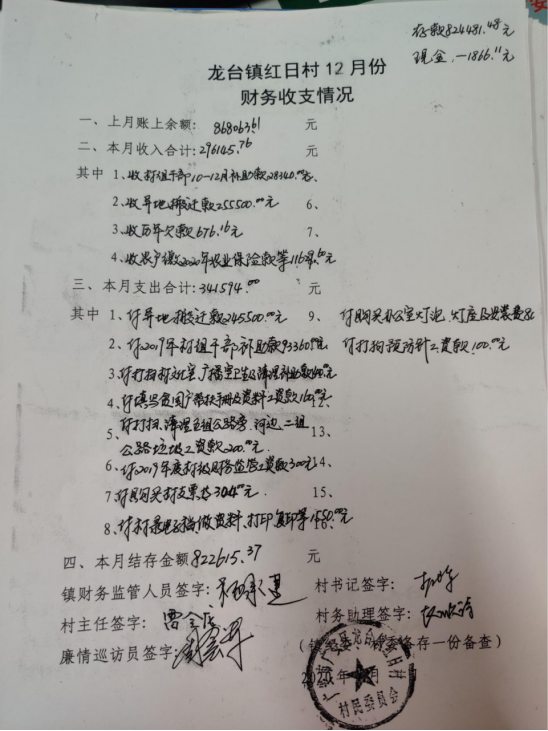 存款824481.48元
现金-1866.11元
龙台镇红日村12月份
财务收支情况
一、上月账上余额:868063.61 元
二、本月收入合计:296145.76 元
其中 1、收村组干部10-12月补助款28340.00元 5、
2、收异地搬迁款255500.00元 6、
3、收历年欠款676.16元 7、
4、收农户缴2020年农业保险款等
三、本月支出合计:341594.00 元
其中 1、付异地搬迁款245500.00元 9、付购买办公室灯泡、灯座及安装费
2、付2019年村组干部补助款93360.00元 付打狗预防针工资款100.00元
3、付打扫村文化室、广播室卫生及清理补助款
4、付填写贫困户帮扶手册及资料工资款 12、
5、付打扫、清理五组公路旁、河边、二组 13、
公路垃圾工资款200.00元
6、付2019年度村级财务监管工资款300元 14、
7、付购买村支票款 15、
8、付村 做资料、打印复印等
四、本月结存金额822615.37 元
镇财务监管人员签字: 村书记签字:
村主任签字: 村务助理签字:
廉情巡访员签字: (镇 村委各存一份备查)
2020年 月
村民委员会